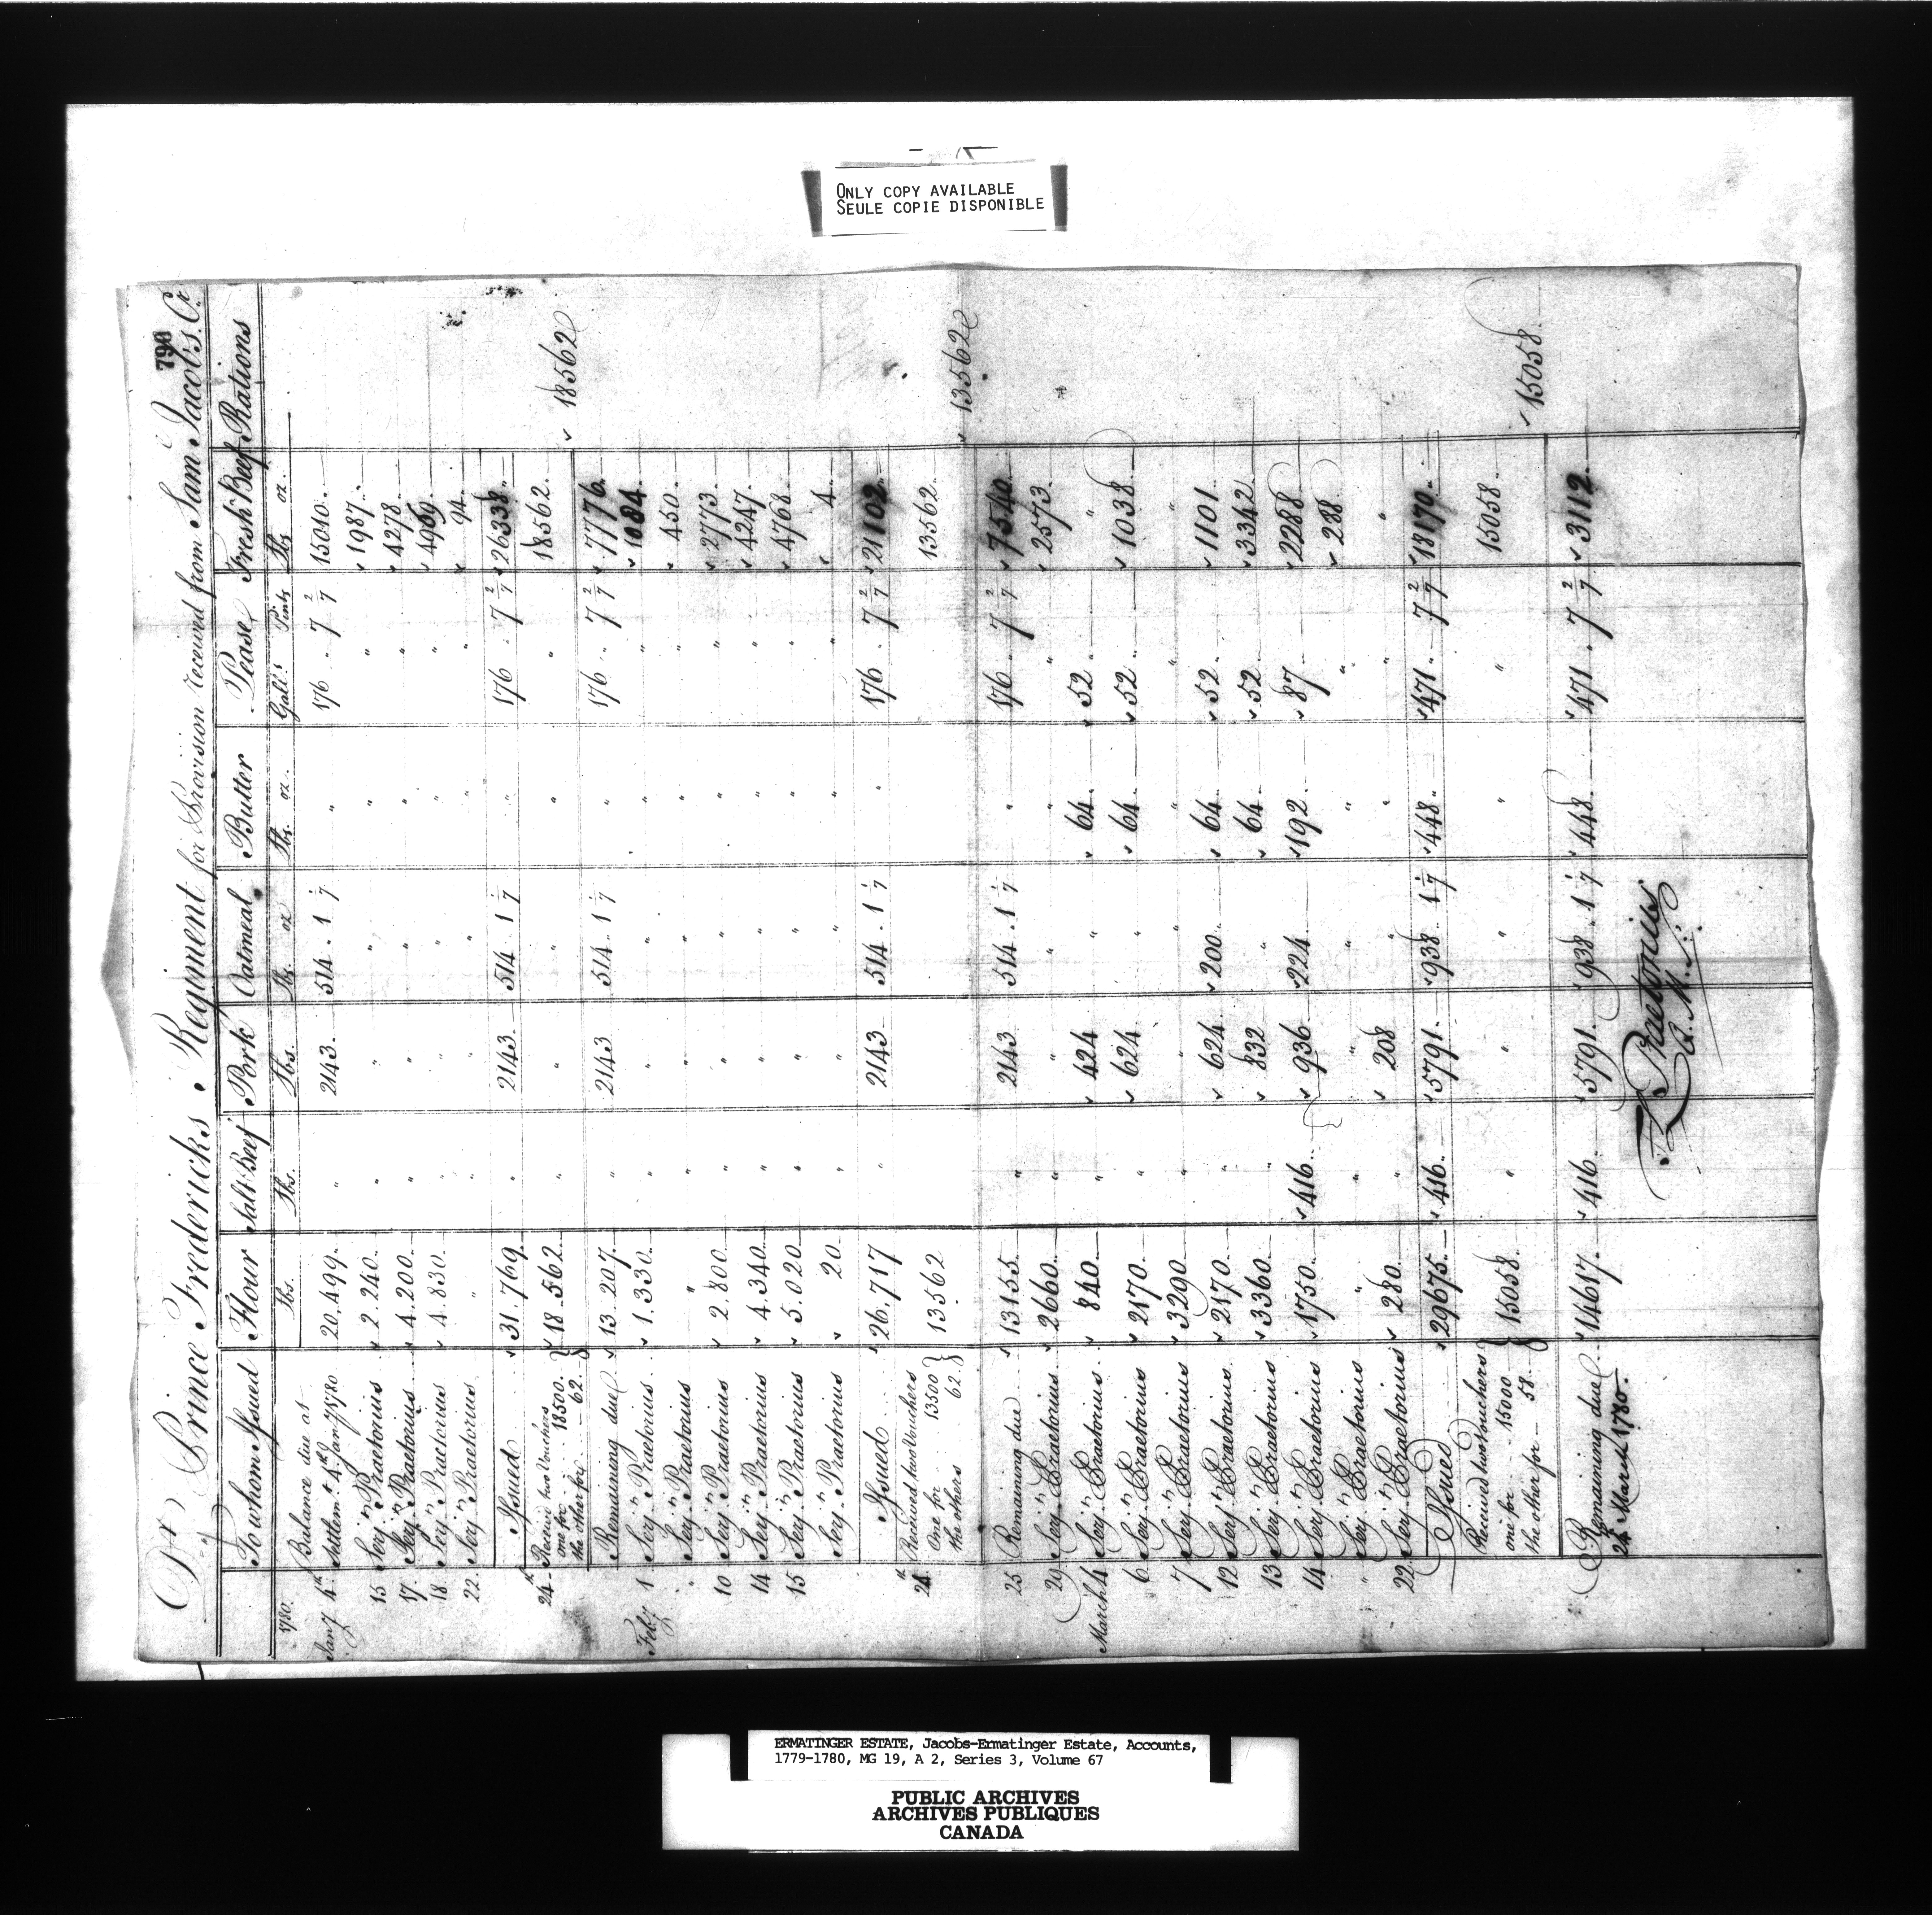 ONLY COPY AVAILABLE
SEULE COPIE DISPONIBLE
790
Dr Prince Fredericks Regiment for Provision received from Sam Jacobs. Cr
To whom Issued Flour Salt Beef Pork Oatmeal Butter Pease Fresh Beef Rations
1780. lbs. lbs. lbs. lbs. oz lbs. oz. Gall.s Pints lbs oz.
Balance due at
Jany 4th. Settlemt. 4th Jany 1780 20,499. " 2143. 514. 1 1/7 " 176. 7 2/7 15010.
15 Serjn. Praetorius 2.240. " " " " " 1987.
17. Serjn. Praetorius 4.200. " " " " " 4278.
18 Serjn. Praetorius 4.830. " " " " " 4969.
22. Serjn. Praetorius " " " " " " 94.
Issued 31.769. " 2143. 514 1 1/7 " 176. 7 2/7 26338.
24th. Received two Vouchers
one for 18500. } 18.562. " " " " " 18562. 18562
the other for 62.
Remaining due 13.207. " 2143 514. 1 1/7 " 176. 7 2/7 7776.
Feby 1 Serjn. Praetorius 1.330. " " " " " 1084.
" Serjn. Praetorius " " " " " " 450.
10 Serjn. Praetorius 2.800. " " " " " 2773.
14 Serjn. Praetorius 4.340. " " " " " 4247.
15 Serjn. Praetorius 5.020. " " " " " 4768.
Serjn. Praetorius 20. " " " " " 4.
Issued 26.717 " 2143 514. 1 1/7 " 176. 7 2/7 21102.
24th. Received two Vouchers
One for 13500 } 13562 13562. 13562
the others 62.
25 Remaining due 13155. " 2143 514. 1 1/7 " 176. 7 2/7 7540.
29 Serjn. Praetorius 2660. " " " " " 2573.
March 4 Serjn. Praetorius 840. " 424 " 64. 52. "
6 Serjn. Praetorius 2170. " 624. " 64. 52. 1038.
7 Serjn. Praetorius 3290. " " " " " "
12 Serjn. Praetorius 2170. " 624. 200. 64. 52. 1101.
13 Serjn. Praetorius 3360. " 832 " 64. 52. 3342.
14 Serjn. Praetorius 1750. 416. 936. 224. 192. 87. 2288.
" Serjn. Praetorius " " " " " " 288.
22. Serjn. Praetorius 280. " 208 " " " "
Issued 29675. 416. 5791. 938 1 1/7 448. 471. 7 2/7 18170.
Received two vouchers
one for 15000 } 15058. " " " " " 15058. 15058.
the other for 58.
Remaining due 14617. 416. 5791. 938. 1 1/7 448. 471. 7 2/7 3112.
24th March 1780.
Praetorius
Q. M.
ERMATINGER ESTATE, Jacobs-Ermatinger Estate, Accounts,
1779-1780, MG 19, A 2, Series 3, Volume 67
PUBLIC ARCHIVES
ARCHIVES PUBLIQUES
CANADA